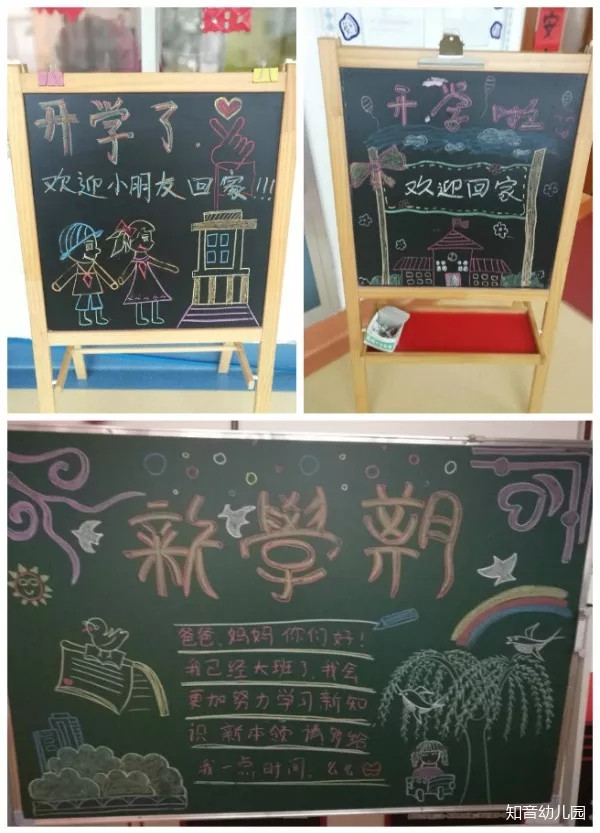 开学了
欢迎小朋友回家!!!
安
开学啦
欢迎回家
新學期
爸爸、妈妈你们好!
我已经大班了,我会
更加努力学习新知
识 新本领 请多给
我一点时间。么么
知音幼儿园